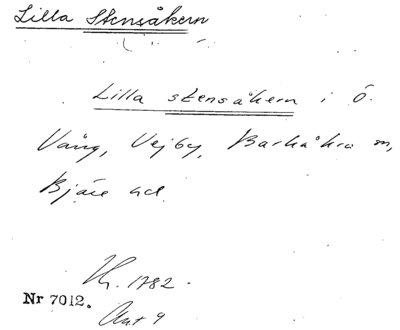 Lilla Stensåkern
Lilla stensåkern i Ö.
Vång, Vejby, Barkåkra m,
Bjäre hd.
Nr 7012.
1782.
Akt 9